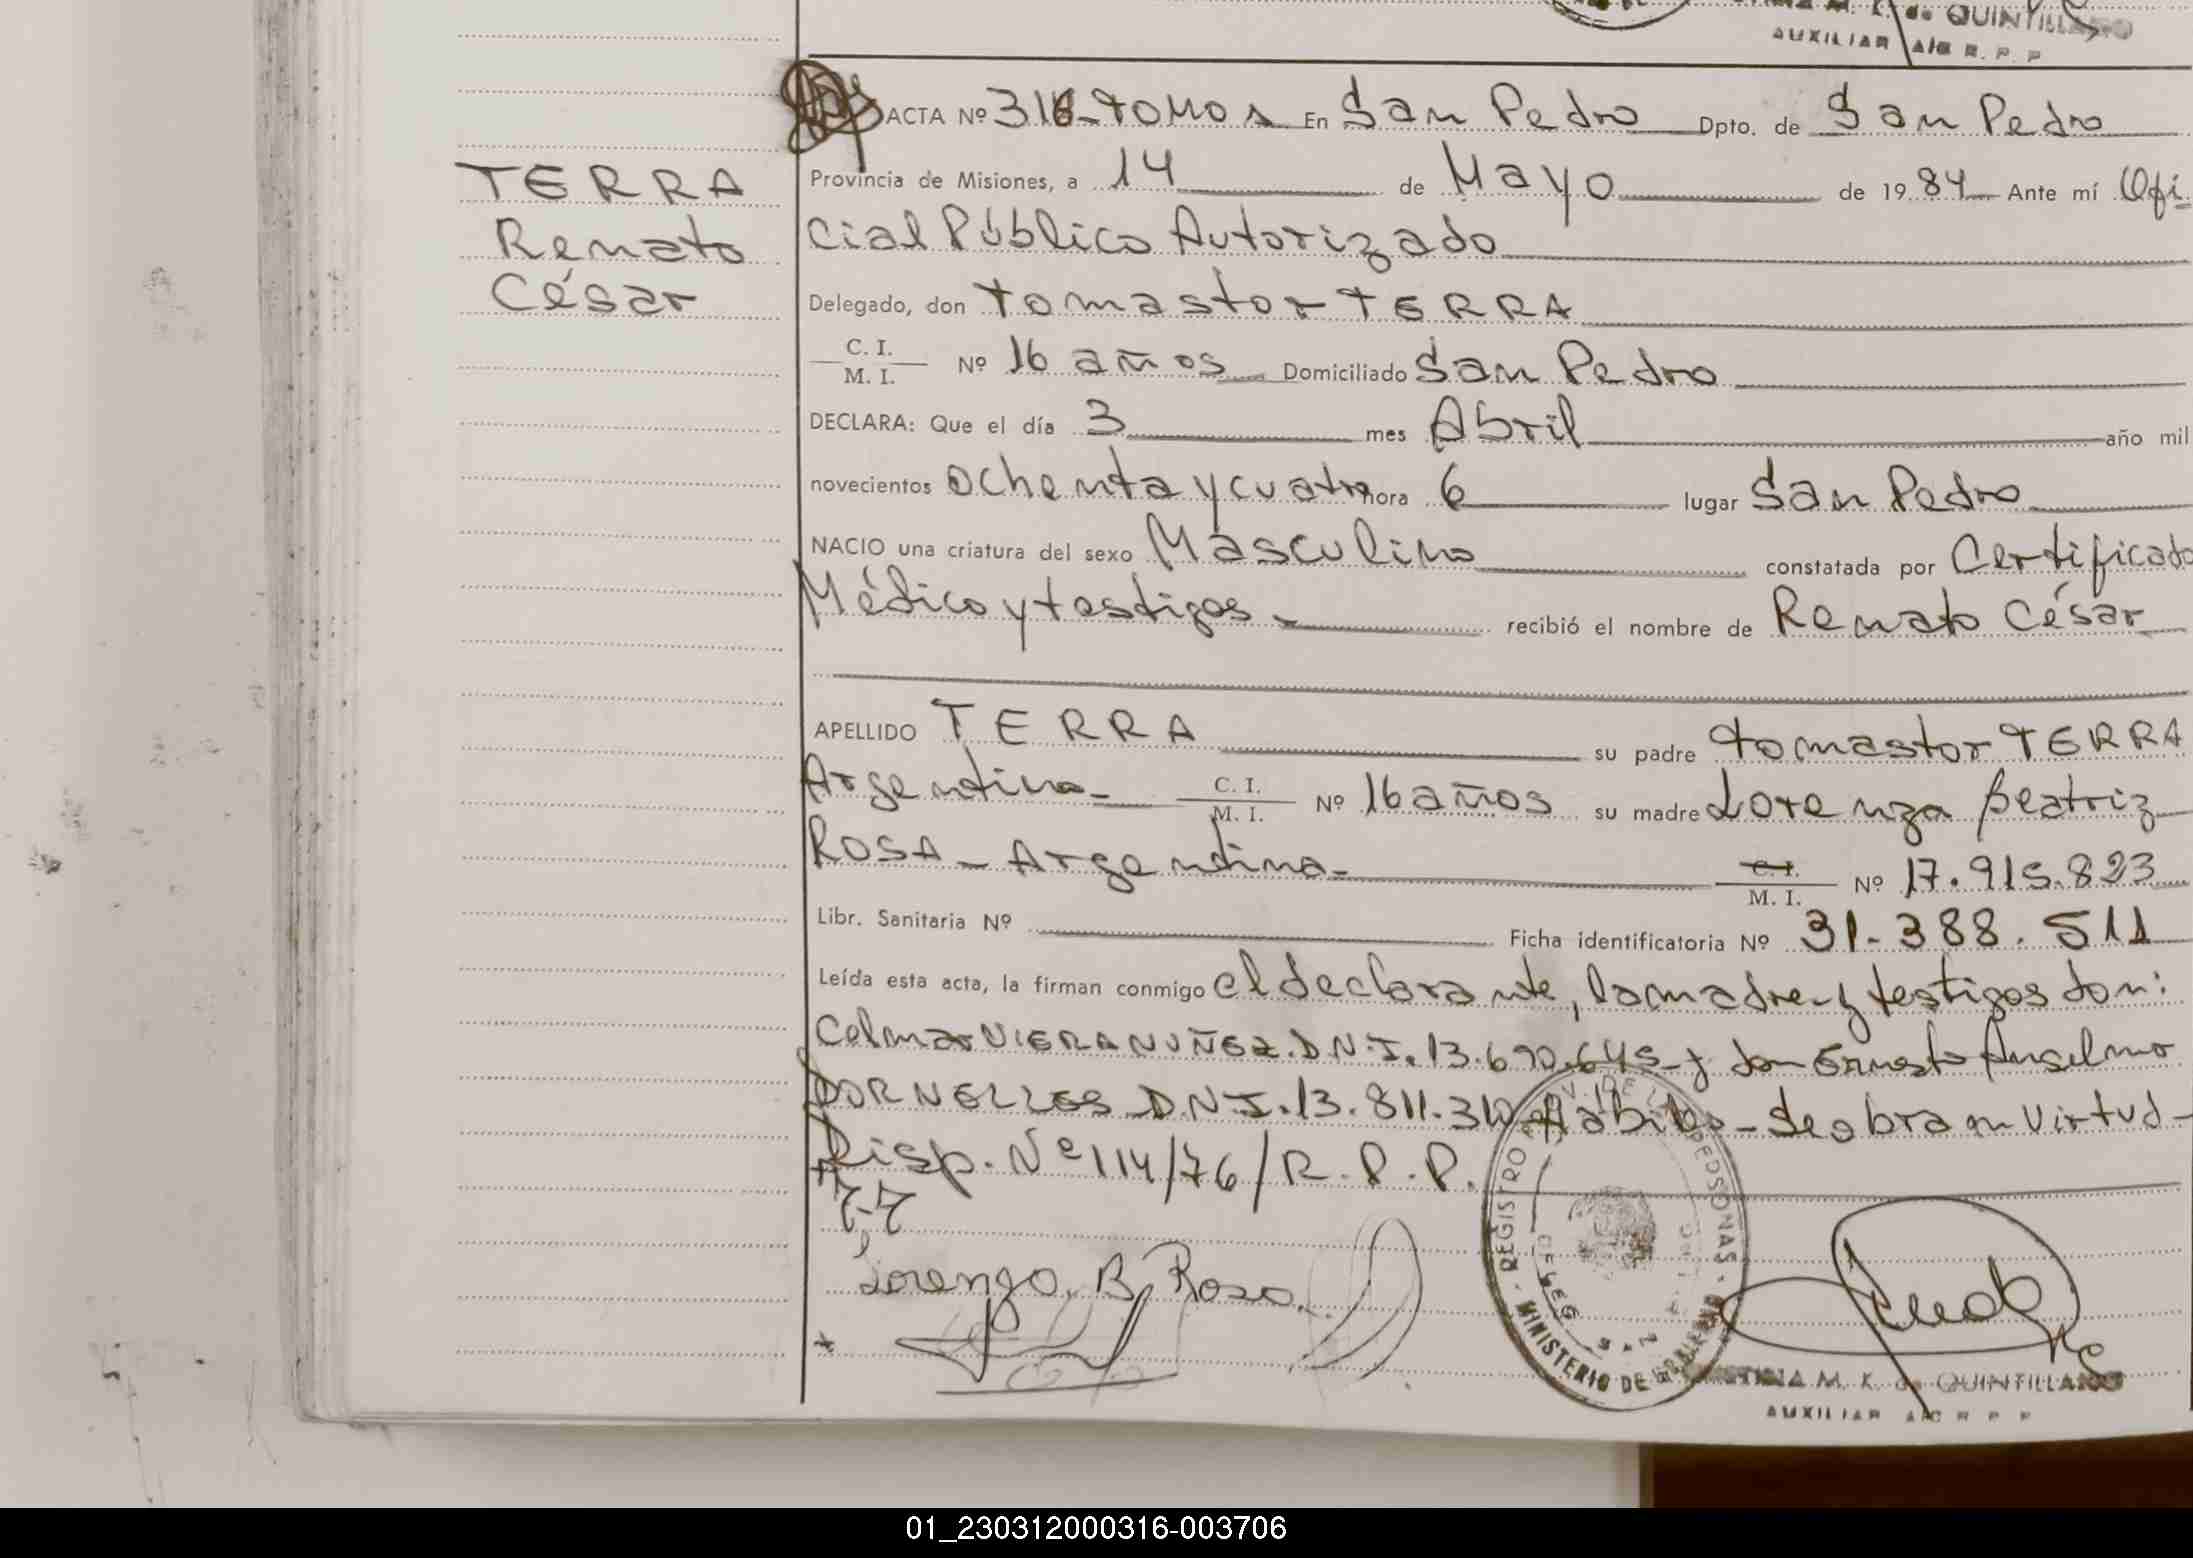 M. K. de QUINTILLANO
AUXILIAR A/C R. P. P
TERRA
Renato
César
ACTA Nº 316-TOMO En San Pedro Dpto. de San Pedro
Provincia de Misiones, a 14 de Mayo de 1984 Ante mí Ofi
cial Público Autorizado
Delegado, don Tomastor TERRA
C. I.
M. I. Nº 16 años Domiciliado San Pedro
DECLARA: Que el día 3 mes Abril año mil
novecientos ochenta y cuatro hora 6 lugar San Pedro
NACIO una criatura del sexo Masculino constatada por Certificado
Médico y testigos - recibió el nombre de Renato César
APELLIDO TERRA su padre Tomastor TERRA
Argentino - C. I. M. I. Nº 16 años su madre Lorenza Beatriz
ROSA - Argentina - C. I. M. I. Nº 17.915.823
Libr. Sanitaria Nº Ficha identificatoria Nº 31-388.511
Leída esta acta, la firman conmigo el declarante, la madre y testigos don:
Celmar VIERA NUÑEZ. D.N.I. 13.690.645 y don Ernesto Anselmo
DORNELLES D.N.I. 13.811.310 Hábiles - Se obra en virtud -
Disp. Nº 114/76/R.P.P.
T-T
Lorenza B. Rosa
REGISTRO PROV. DE LAS PERSONAS
MINISTERIO DE GOBIERNO
M. K. de QUINTILLANO
AUXILIAR A/C R. P. P
01_230312000316-003706